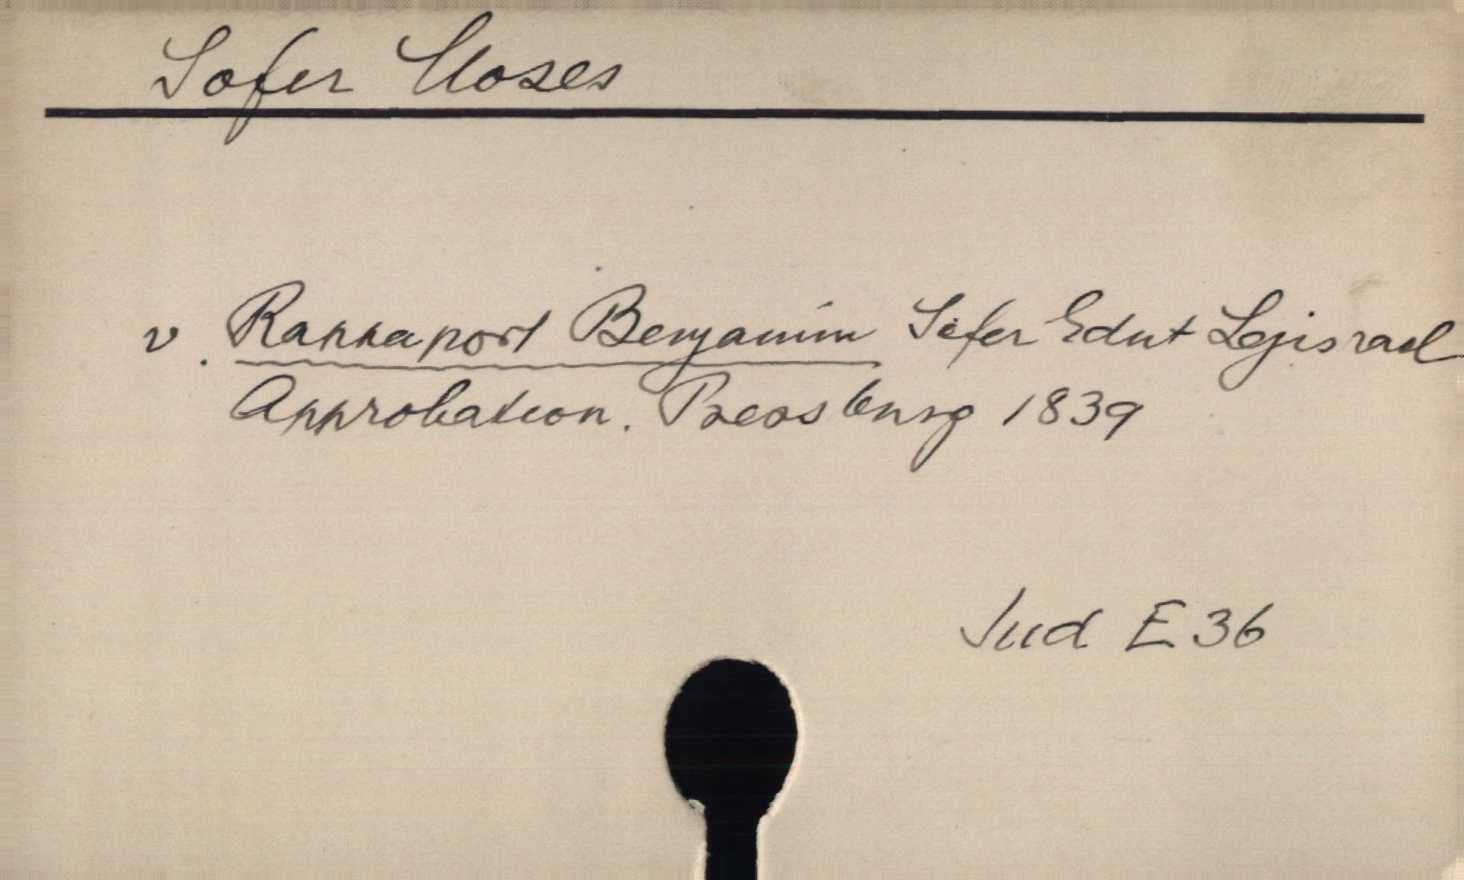 Sofer Moses
v. Rappaport Benyamin Sefer Edut Lejisrael
Approbation. Pressburg 1839
Jud E 36